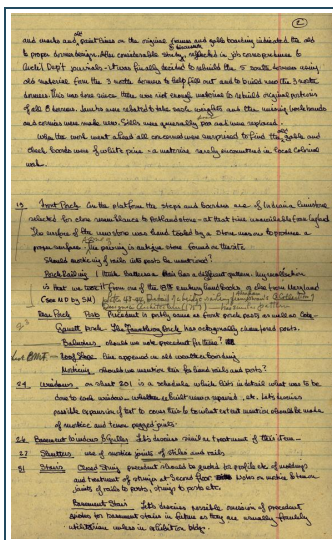 (2
and marks and paint lines on the original frames and gable boarding indicated the old
to proper dormer design. After considerable study, reflected in job correspondence to
Arch'l Dep't journals - it was finally decided to rebuild the 5 south dormers using
old material from the 3 north dormers to help fill out and to build new the 3 north
dormers. This was done since there was not enough material to rebuild original portions
of all 8 dormers. Jambs were rebated to take sash weights and the missing barge boards
and cornices were made new. Sills were generally poor and were replaced.
When the work went ahead all concerned were surprised to find the old gable and
cheek boards were of white pine - a material rarely encountered in local Colonial
work.
19 Front Porch On the platform the steps and borders are of Indiana limestone
selected for close resemblance to Portland stone - at that time unavailable from England
The surface of the new stone was hand tooled by a stone mason to produce a
proper surface. The paving is antique stone found on the site.
Should morticing of rails into posts be mentioned?
Porch Railing I think has a different pattern. My recollection
is that we took it from one of the 18th century hand books, or else from Maryland
(see M.D. by SM)
Rear Porch Posts Precedent is partly same as front porch posts as well as
porch. The porch has octagonally chamfered posts.
Balusters should we note precedent for these?
Roof Stage Has appeared on old weather boarding
Morticing should we mention this for hand rails and posts?
24 Windows on sheet 201 is a schedule which lists in detail what was to be
done to each window - whether rebuilt new or repaired, etc. Let's discuss
possible expansion of text to cover this & to what extent mention should be made
of mortice and tenon pegged joints.
26 Basement Windows & Grilles Let's discuss similar treatment of this item -
27 Shutters use of mortice joints of stiles and rails
31 Stairs Closed String precedent should be quoted for profile etc. of moldings
and treatment of strings at Second floor Notes on mortice & tenon
joints of rails to posts, strings to posts etc.
Basement Stair Let's discuss possible omission of precedent
quotes for basement stairs in future as they are usually frankly
utilitarian unless in exhibition bldgs.